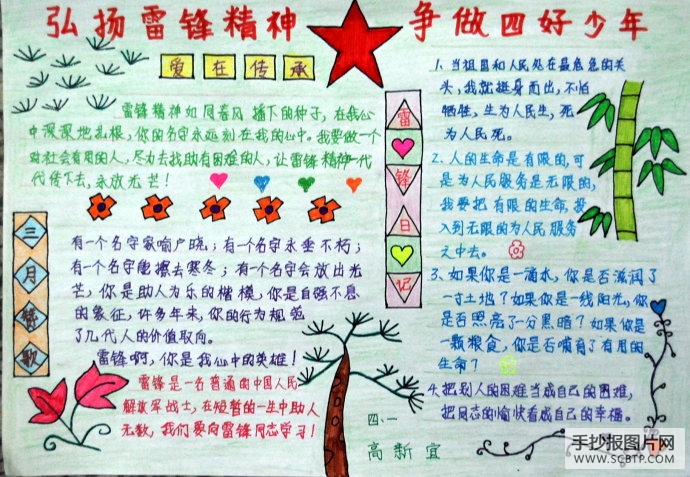 弘扬雷锋精神 争做四好少年
爱在传承
雷锋精神如同春风播下的种子，在我心
中深深地扎根，你的名字永远刻在我的心中。我要做一个
对社会有用的人，尽力去找助有困难的人，让雷锋精神一代
代传下去，永放光芒！
三月赞歌
有一个名字家喻户晓；有一个名字永垂不朽；
有一个名字能擦去寒冬；有一个名字会放出光
芒，你是助人为乐的楷模，你是自强不息
的象征，许多年来，你的行为规范
了几代人的价值取向。
雷锋啊，你是我心中的英雄！
雷锋是一名普通的中国人民
解放军战士，在短暂的一生中助人
无数，我们要向雷锋同志学习！
雷锋日记
1、当祖国和人民处在最危急的关
头，我就挺身而出，不怕
牺牲，生为人民生，死
为人民死。
2、人的生命是有限的，可
是为人民服务是无限的，
我要把有限的生命，投
入到无限的为人民服务
之中去。
3、如果你是一滴水，你是否滋润了
一寸土地？如果你是一线阳光，你是
否照亮了一分黑暗？如果你是
一颗粮食，你是否哺育了有用的
生命？
4、把别人的困难当成自己的困难，
把同志的愉快看成自己的幸福。
四、一
高新宜
手抄报图片网
WWW.SCBTP.COM